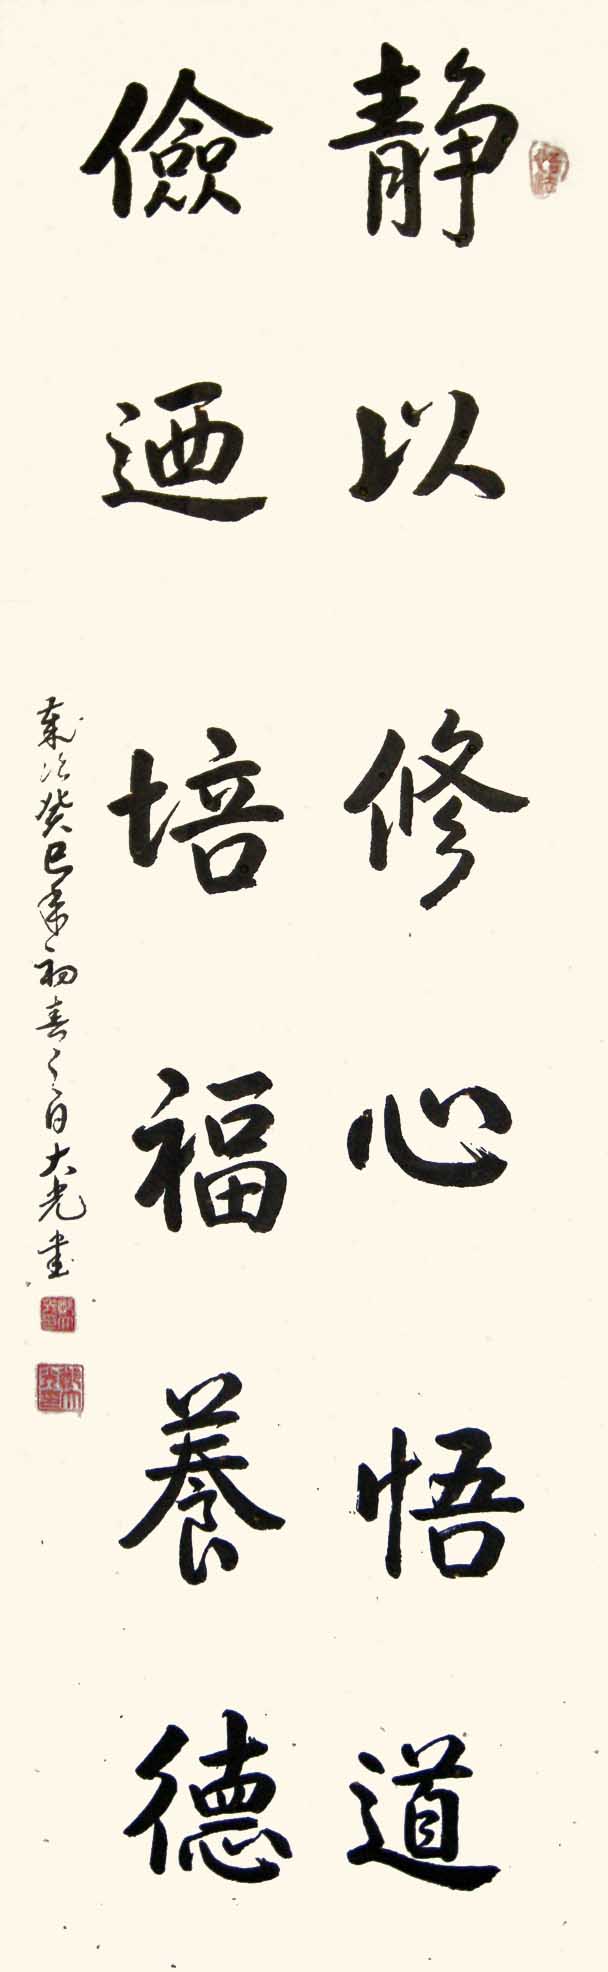 静以修心悟道
儉迺培福養德
歲次癸巳年初春之日大光書